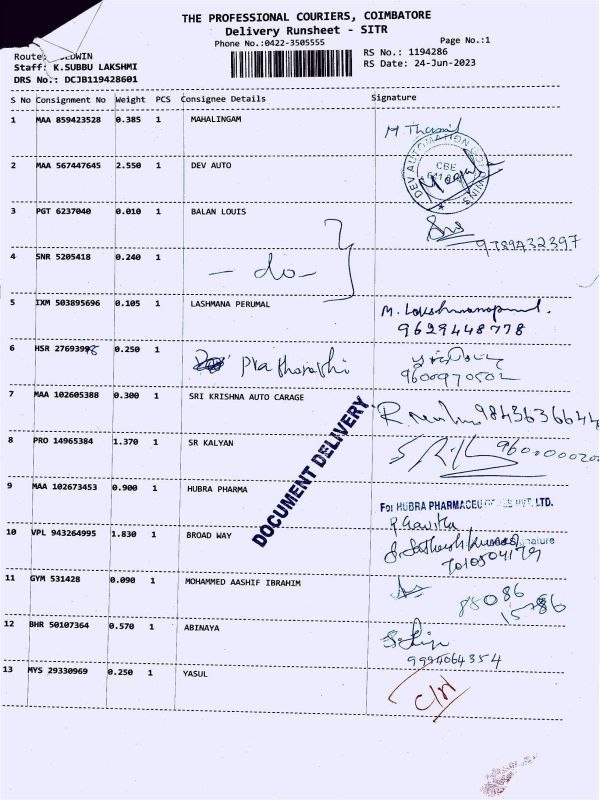 THE PROFESSIONAL COURIERS, COIMBATORE
Delivery Runsheet - SITR
Phone No.:0422-3505555
Page No.:1
Route:
RS No.: 1194286
Staff: K.SUBBU LAKSHMI
RS Date: 24-Jun-2023
DRS No.: DCJB119428601
S No Consignment No Weight PCS Consignee Details Signature
1 MAA 859423528 0.385 1 MAHALINGAM
2 MAA 567447645 2.550 1 DEV AUTO
DEV AUTOMATION
CBE
3 PGT 6237040 0.010 1 BALAN LOUIS
9789432397
4 SNR 5205418 0.240 1 - do -
5 IXM 503895696 0.105 1 LASHMANA PERUMAL
9629448778
6 HSR 27693998 0.250 1
9600970502
7 MAA 102605388 0.300 1 SRI KRISHNA AUTO CARAGE
8 PRO 14965384 1.370 1 SR KALYAN
DOCUMENT DELIVERY
9 MAA 102673453 0.900 1 HUBRA PHARMA
For HUBRA PVT. LTD.
10 VPL 943264995 1.830 1 BROAD WAY
11 GYM 531428 0.090 1 MOHAMMED AASHIF IBRAHIM
88086
15786
12 BHR 50107364 0.570 1 ABINAYA
9994064354
13 MYS 29330969 0.250 1 YASUL